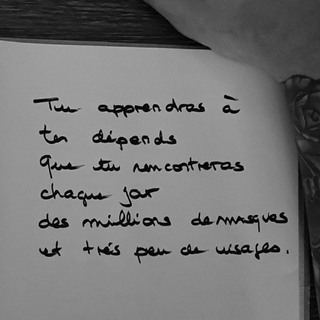 Tu apprendras à
tes dépends
que tu rencontreras
chaque jour
des millions de masques
et très peu de visages.